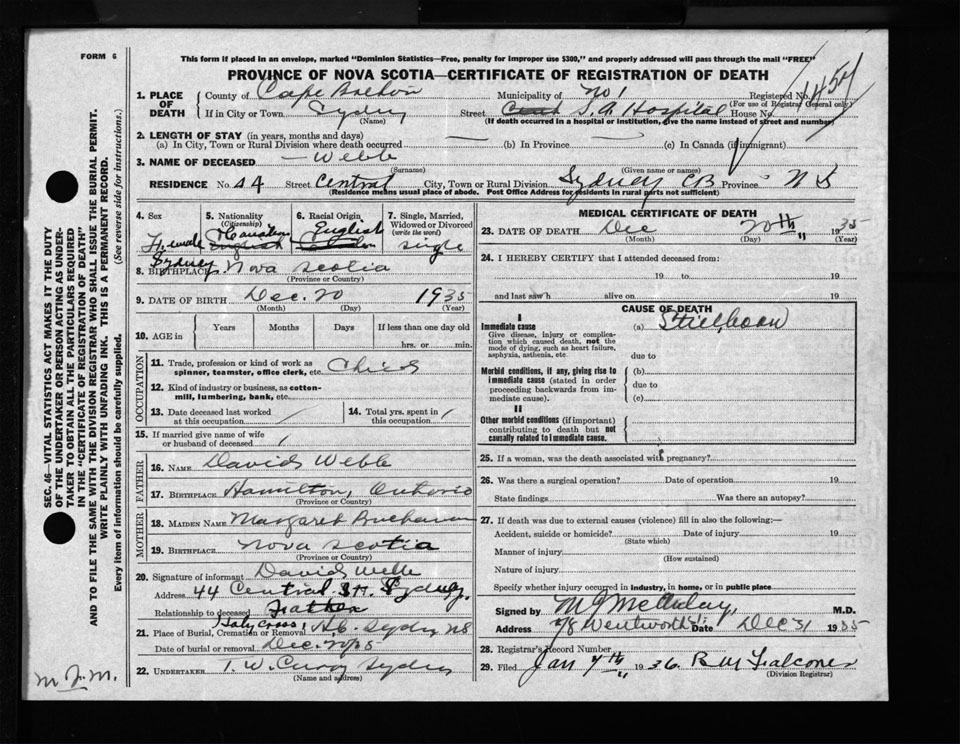 FORM 6
This form if placed in an envelope, marked "Dominion Statistics—Free, penalty for improper use $300," and properly addressed will pass through the mail "FREE"
PROVINCE OF NOVA SCOTIA—CERTIFICATE OF REGISTRATION OF DEATH
1. PLACE OF DEATH County of Cape Breton Municipality of No 1 Registered No.
(For use of Registrar General only)
If in City or Town Sydney Street S. A. Hospital House No.
(Name) (If death occurred in a hospital or institution, give the name instead of street and number)
2. LENGTH OF STAY (in years, months and days)
(a) In City, Town or Rural Division where death occurred (b) In Province (c) In Canada (if immigrant)
3. NAME OF DECEASED — Webb
(Surname) (Given name or names)
RESIDENCE No. 44 Street Central City, Town or Rural Division Sydney CB Province N S
(Residence means usual place of abode. Post Office Address for residents in rural parts not sufficient)
4. Sex Female
5. Nationality (Citizenship) Canadian English
6. Racial Origin English
7. Single, Married, Widowed or Divorced (write the word) single
8. BIRTHPLACE Sydney Nova Scotia
(Province or Country)
9. DATE OF BIRTH Dec. 20 1935
(Month) (Day) (Year)
10. AGE in Years Months Days If less than one day old
hrs. or min.
OCCUPATION
11. Trade, profession or kind of work as spinner, teamster, office clerk, etc. Child
12. Kind of industry or business, as cotton-mill, lumbering, bank, etc.
13. Date deceased last worked at this occupation
14. Total yrs. spent in this occupation
15. If married give name of wife or husband of deceased
FATHER
16. NAME David Webb
17. BIRTHPLACE Hamilton, Ontario
(Province or Country)
MOTHER
18. MAIDEN NAME Margaret Buchanan
19. BIRTHPLACE Nova Scotia
(Province or Country)
20. Signature of informant David Webb
Address 44 Central St. Sydney.
Relationship to deceased Father
21. Place of Burial, Cremation or Removal Holy Cross, Sydney NS
Date of burial or removal Dec. 20/35
22. UNDERTAKER T. W. Curry Sydney
(Name and address)
MEDICAL CERTIFICATE OF DEATH
23. DATE OF DEATH Dec 20th 1935
(Month) (Day) (Year)
24. I HEREBY CERTIFY that I attended deceased from:
19 to 19
and last saw h alive on 19
CAUSE OF DEATH
I
Immediate cause (a) Stillborn
Give disease, injury or complication which caused death, not the mode of dying, such as heart failure, asphyxia, asthenia, etc. due to
Morbid conditions, if any, giving rise to immediate cause (stated in order proceeding backwards from immediate cause). (b)
due to
(c)
II
Other morbid conditions (if important) contributing to death but not causally related to immediate cause.
25. If a woman, was the death associated with pregnancy?
26. Was there a surgical operation? Date of operation 19
State findings Was there an autopsy?
27. If death was due to external causes (violence) fill in also the following:—
Accident, suicide or homicide? Date of injury 19
(State which)
Manner of injury
(How sustained)
Nature of injury
Specify whether injury occurred in industry, in home, or in public place
Signed by M.D.
Address Wentworth St. Date Dec 31 1935
28. Registrar's Record Number
29. Filed Jan 7th 1936. R M Falconer
(Division Registrar)
SEC. 46—VITAL STATISTICS ACT MAKES IT THE DUTY
OF THE UNDERTAKER OR PERSON ACTING AS UNDER-
TAKER TO OBTAIN ALL THE PARTICULARS REQUIRED
IN THE "CERTIFICATE OF REGISTRATION OF DEATH"
AND TO FILE THE SAME WITH THE DIVISION REGISTRAR WHO SHALL ISSUE THE BURIAL PERMIT.
WRITE PLAINLY WITH UNFADING INK. THIS IS A PERMANENT RECORD.
Every item of information should be carefully supplied. (See reverse side for instructions.)